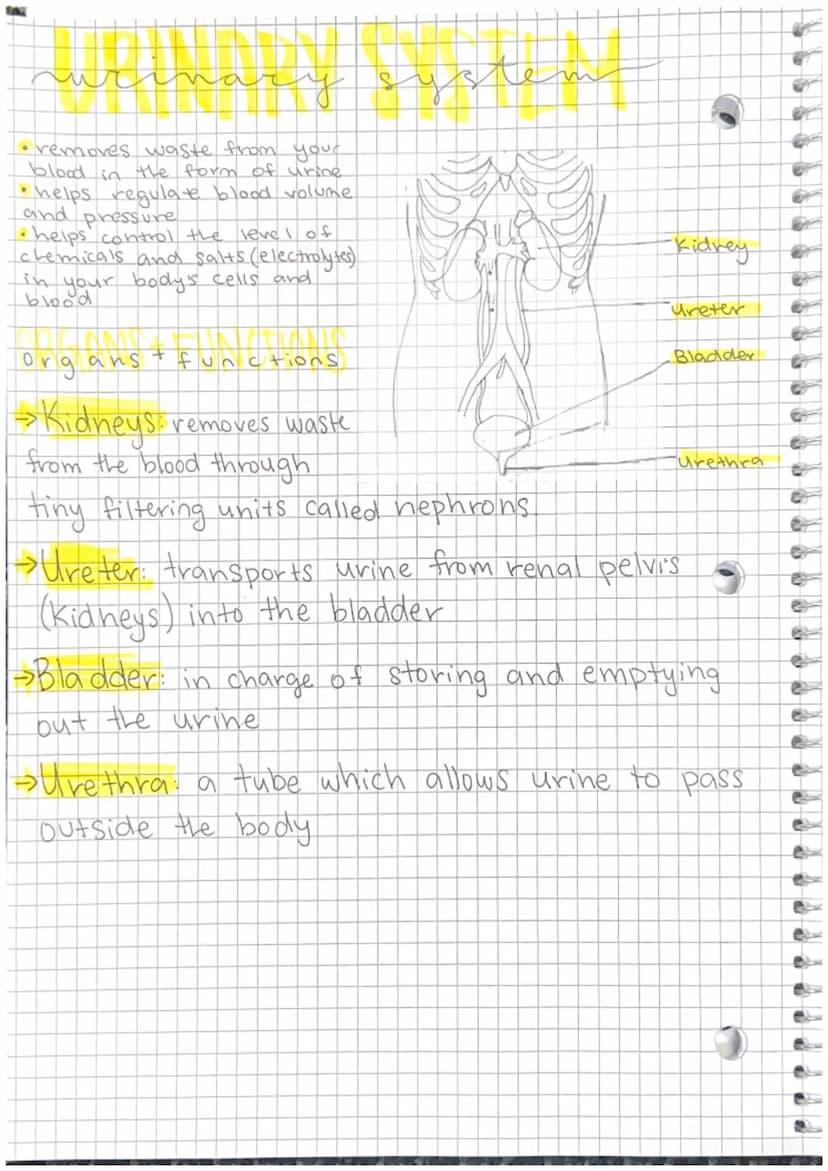 URINARY SYSTEM
urinary system
• removes waste from your
blood in the form of urine
• helps regulate blood volume
and pressure
• helps control the level of
chemicals and salts (electrolytes)
in your body's cells and
blood
Kidney
ureter
Bladder
urethra
ORGANS + FUNCTIONS
organs + functions
→Kidneys: removes waste
from the blood through
tiny filtering units called nephrons.
→Ureter: transports urine from renal pelvis
(Kidneys) into the bladder
→Bladder: in charge of storing and emptying
out the urine
→Urethra: a tube which allows urine to pass
outside the body